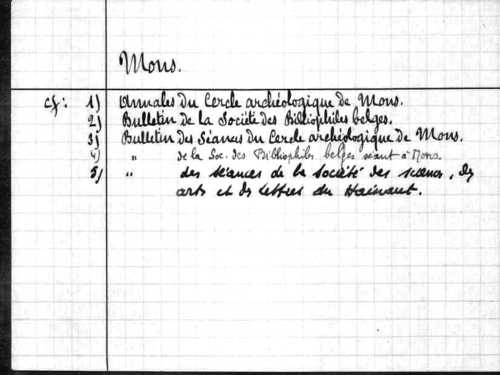 Mons.
cf: 1) Annales du Cercle archéologique de Mons.
2) Bulletin de la Société des Bibliophiles belges.
3) Bulletin des Séances du Cercle archéologique de Mons.
4) " de la Soc. des Bibliophiles belges séant à Mons
5) " des séances de la Société des sciences, des
arts et des lettres du Hainaut.